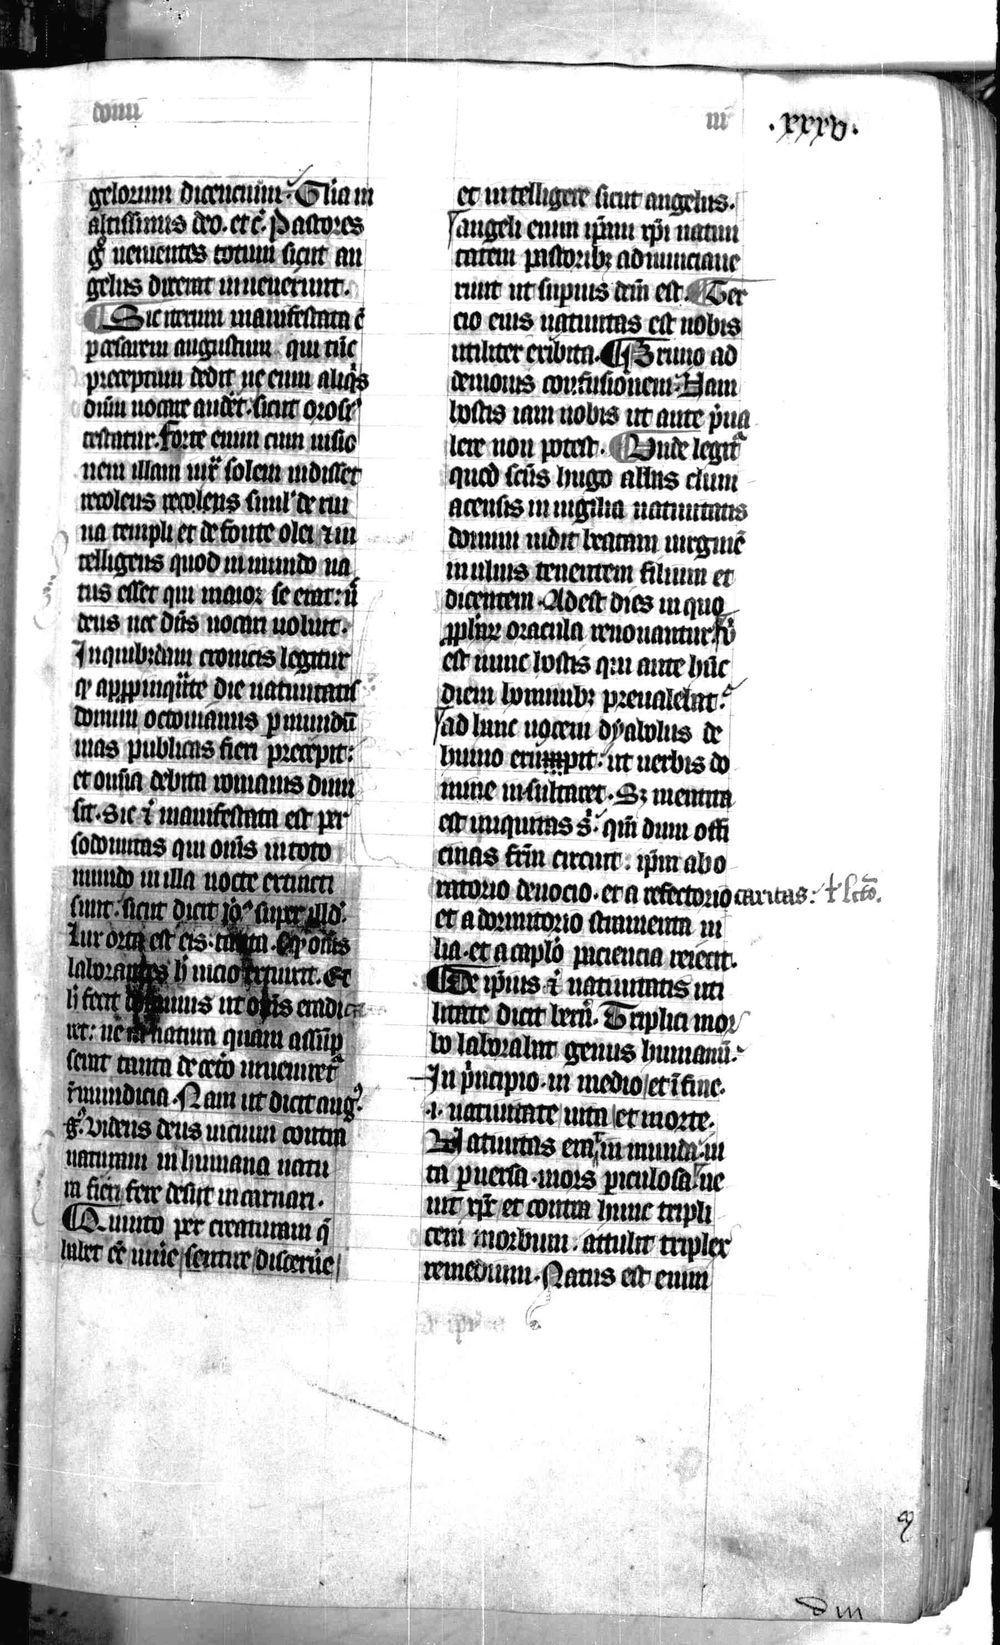 domi
iii
.xxxv.
gelorum dicencium. Gl̄ia in
altissimis deo. et c̄. Pastores
gͦ uenientes totum sicut an
gelus dixerat inuenerunt.
Sic iterum manifestata ē
per cesarem augustum qui tūc
preceptum dedit ne eum aliqͥs
dn̄m uocare audēt. sicut orosiꝰ
testatur. Forte enim cum uisio
nem illam iux̄ solem uidisset
recolens recolens simlʼ de rui
na templi et de fonte olei ⁊ in
telligens quod in mundo na
tus esset qui maior se erat: n̄
deus nec dn̄s uocari uoluit.
In quibꝫdam cronicis legitur
ꝙ appropinqͣ̄te die natiuitatis
domini octouianus ꝑ mundū
uias publicas fieri precepit:
et om̄ia debita romanis dimi
sit. Sic ⁊ manifestata est per
sodomitas qui om̄s in toto
mundo in illa nocte extincti
sunt. sicut dicit Jo. super illd̓.
Lux orta est eis. tanta. Eꝙ om̄s
laborantes hͦ uicio extinxit. Et
hͦ fecit dominus ut om̄s eradica
ret: ne in natura quam assūp
serat tanta de cetͦo inueniretͬ
ī̄mundicia. Nam ut dicit augꝰ.
gͦ. Videns deus uicium contra
naturam in humana natu
ra fieri fere desiit incarnari.
Quinto per creaturam q̄
habet eē uiuē sentire discernē
et intelligere sicut angelus.
angeli enim ip̄am xp̄i natiui
tatem pastoribꝫ adnunciaue
runt ut supius dcm̄ est. Ter
cio eius natiuitas est nobis
utiliter exibita. Primo ad
demonis confusionem. Nam
hostis iam nobis ut ante p̄ua
lere non potest. Unde legitͬ
quod scūs hugo abbas cluni
acensis in uigilia natiuitatis
domini uidit beatam uirginē
in ulnis tenentem filium et
dicentem. Adest dies in quo
ꝓphaꝝ oracula renouantur. ubi
est nunc hostis qui ante hūc
diem hominibꝫ preualebat.
ad hanc uocem dyabolus de
humo erumpit. ut uerbis do
mine insultaret. Sꝫ mentita
est iniquitas sͥ. qm̄ dum offi
cinas frm̄ circuit. ip̄m ab o
ratorio deuocio. et a refectorio caritas: ł lcō.
et a dormitorio stramenta ui
lia. et a caplo paciencia reiecit.
De ip̄ius ⁊ natiuitatis uti
litate dicit bern̄. Triplici mor
bo laborabat genus humanū.
In pͥncipio. in medio et ī fine.
.i. natiuitate uita et morte.
Natiuitas erat īmunda. ui
ta ꝑuersa. mors ꝑiculosa. ue
nit xp̄c et contra hunc tripli
cem morbum. attulit triplex
remedium. Natus est enim
d iii